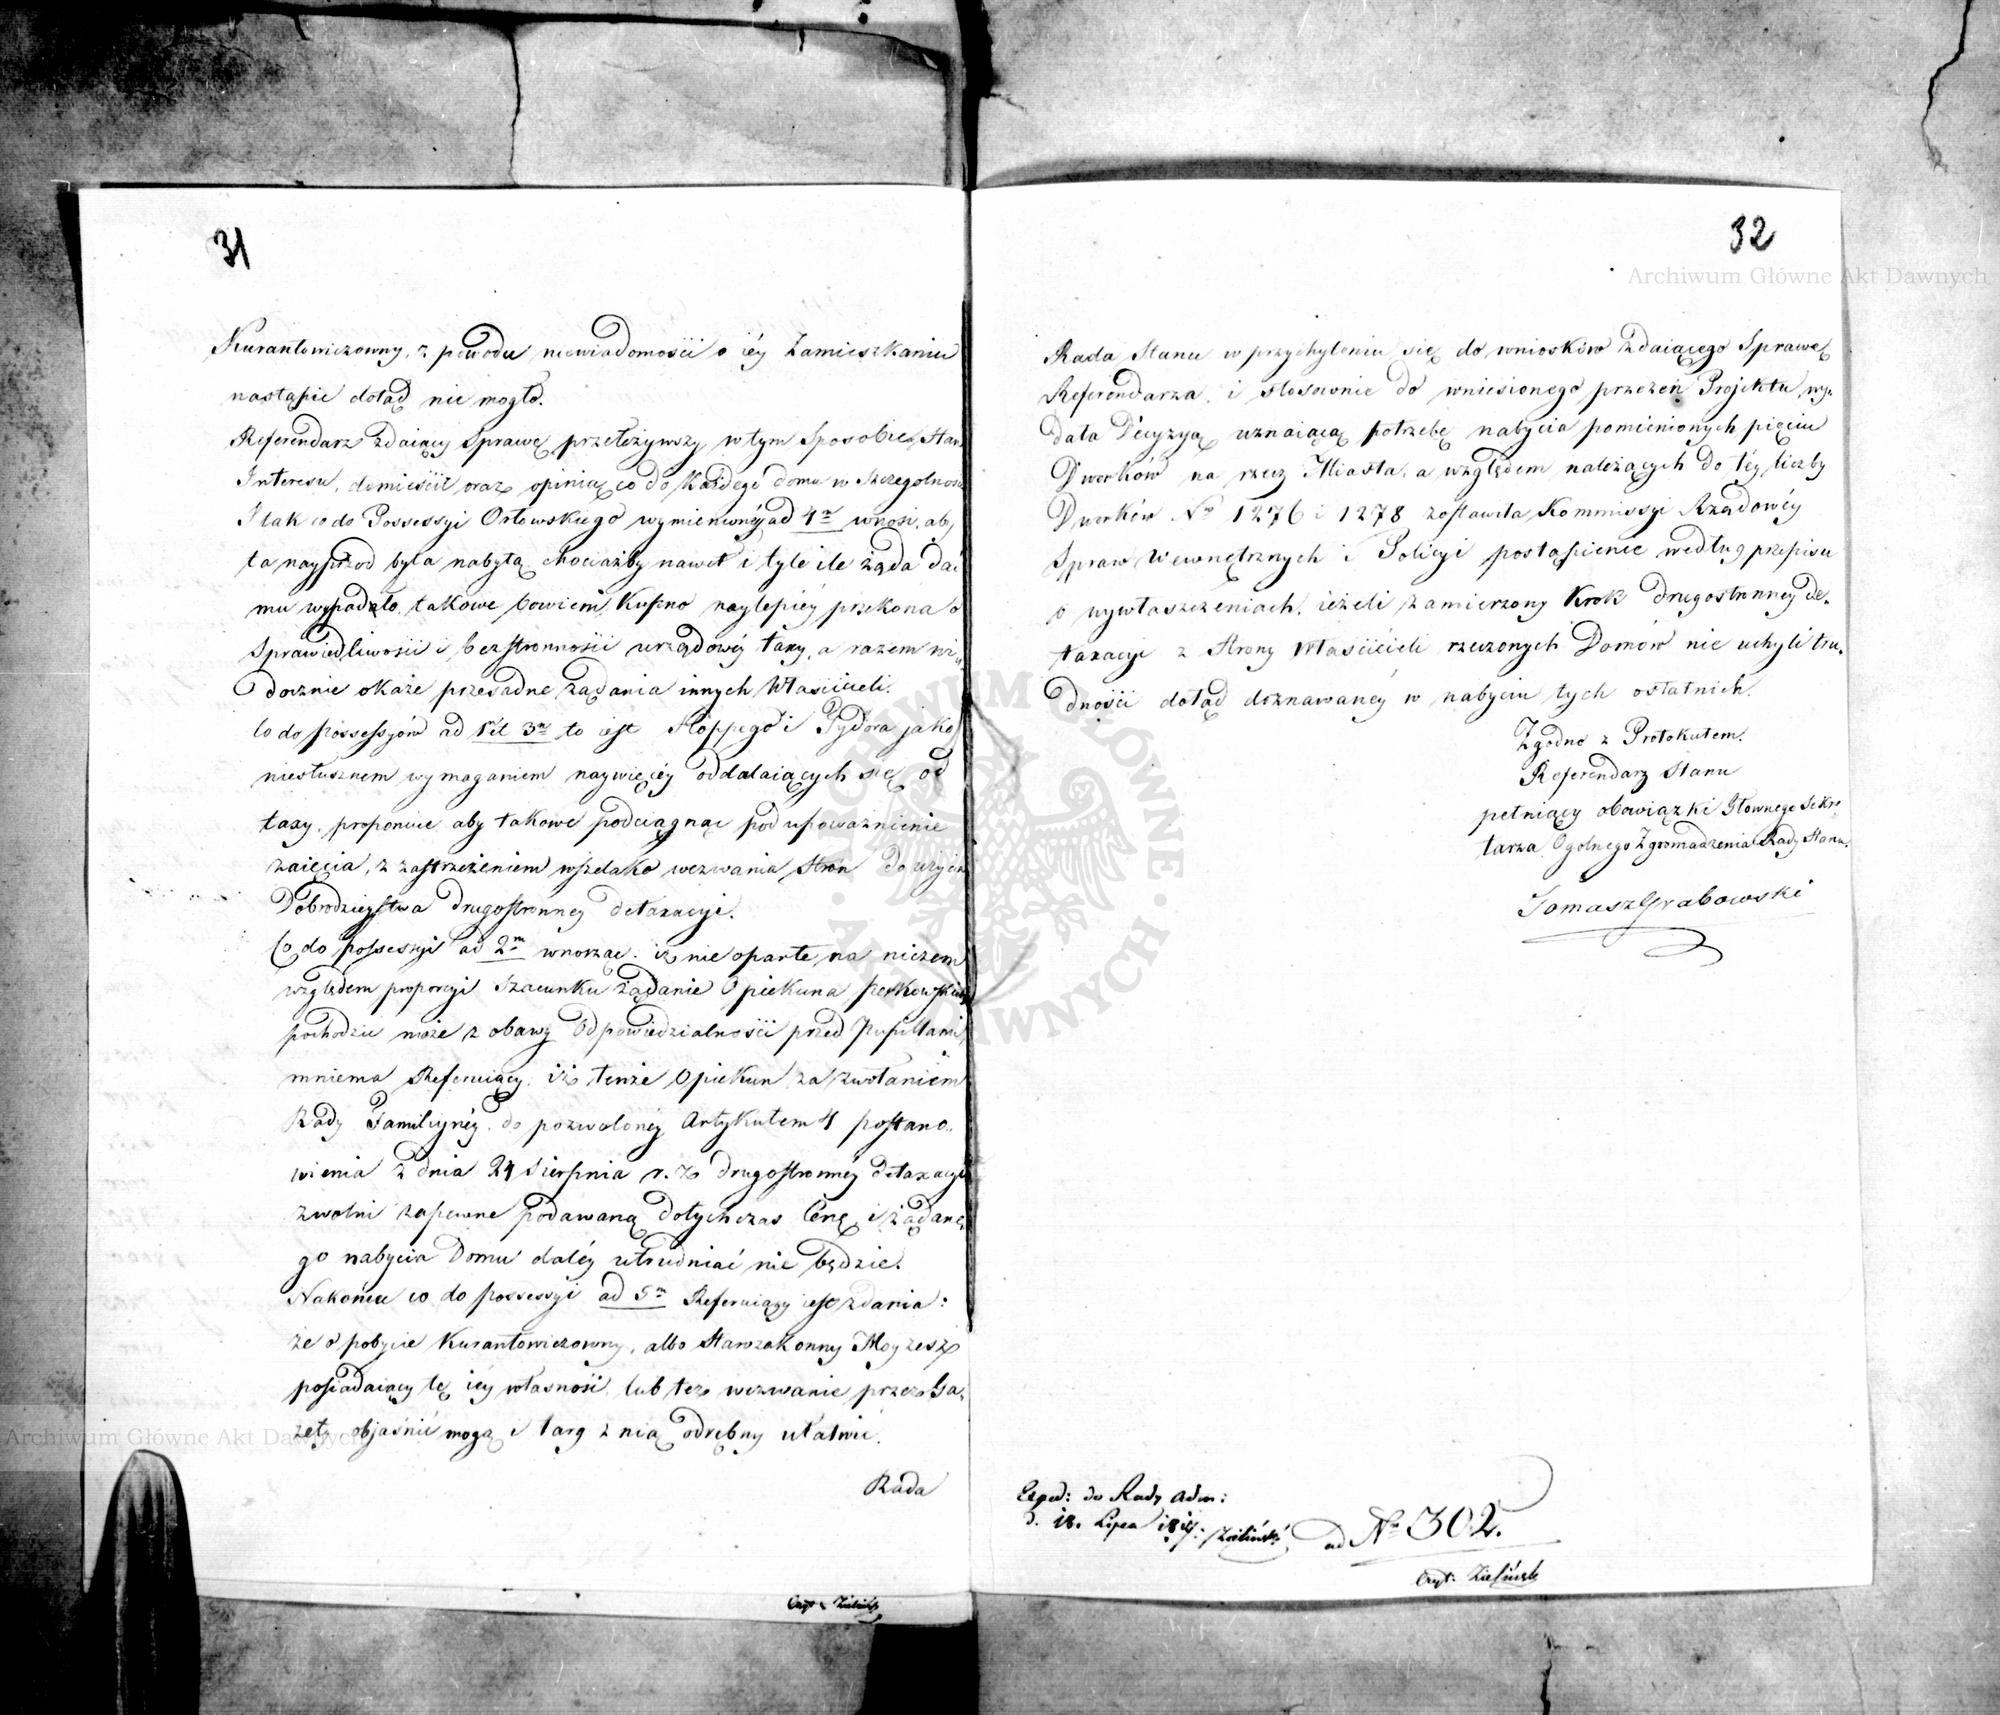 31
Kurantowiczowny, z powodu niewiadomości o iéy Zamieszkaniu
nastąpić dotąd nie mogło.
Referendarz zdaiący Sprawę przełożywszy w tym Sposobie Stan
Interesu, domieścił oraz opinią co do Każdego domu w Szczegolności
I tak co do Possessyi Orłowskiego wymienionéy ad 4m wnosi, aby
ta nayprzod była nabytą chociażby nawet i tyle ile żąda dać
mu wypadało, takowe bowiem Kupno naylepiéy przekona o
Sprawiedliwości i bezstronności urządowéy taxy, a razem wi„
docznie okaże przesadne żądania innych Właścicieli.
Co do possessyów ad 1 et 3m to iest Hoppego i Pydora jako
niesłusznem wymaganiem naywięcéy oddalaiących się od
taxy, proponuie aby takowe podciągnąć pod upoważnienie
zaięcia, z zastrzeżeniem wszelako wezwania Stron do użycia
Dobrodzieystwa drugostronney detaxacyi.
Co do possessyi ad 2m wnosząc, iż nie oparte na niczem
względem proporcyi Szacunku żądanie Opiekuna
pochodzić może z obawy Odpowiedzialności przed Pupillami,
mniema Referuiący, iż tenże Opiekun za zwołaniem
Rady Familiynéy do pozwolonéy Artykułem 4 postano„
wienia z dnia 24 Sierpnia r. z drugostronnéy detaxacyi
zwolni zapewne podawaną dotychczas Cenę i żądane„
go nabycia Domu daléy utrudniać nie będzie.
Nakońcu co do possessyi ad 5m Referuiący iest zdania:
że o pobycie Kurantowiczowny, albo Starozakonny Moyżesz
posiadaiący tę iéy własność, lub też wezwanie przez Ga„
zety objaśnić mogą i targ z nią odrębny ułatwić.
Rada
32
Rada Stanu w przychyleniu się do wniosków zdaiącego Sprawę
Referendarza, i stosownie do wniesionego przezeń Projektu wy„
dała Decyzyą uznaiącą potrzebę nabycia pomienionych pięciu
Dworków na rzecz Miasta, a względem należących do téy liczby
Dworków No 1276 i 1278 zostawiła Kommissyi Rządowéy
Spraw Wewnętrznych i Policyi postąpienie według przepisu
o wywłaszczeniach, ieżeli zamierzony Krok drugostronney de„
taxacyi z Strony Właścicieli rzeczonych Domów nie uchyli tru„
dności dotąd doznawanéy w nabyciu tych ostatnich.
Zgodno z Protokułem.
Referendarz Stanu
pełniący obowiązki Głownego Sekre„
tarza Ogolnego Zgromadzenia Rady Stanu.
Tomasz Grabowski
Exped: do Rady Adm:
d. 18. Lipca Zieliński
ad No 302.
Czyt. Zieliński
Czyt. Zieliński
Archiwum Główne Akt Dawnych
Archiwum Główne Akt Dawnych
ARCHIWUM GŁÓWNE AKT DAWNYCH